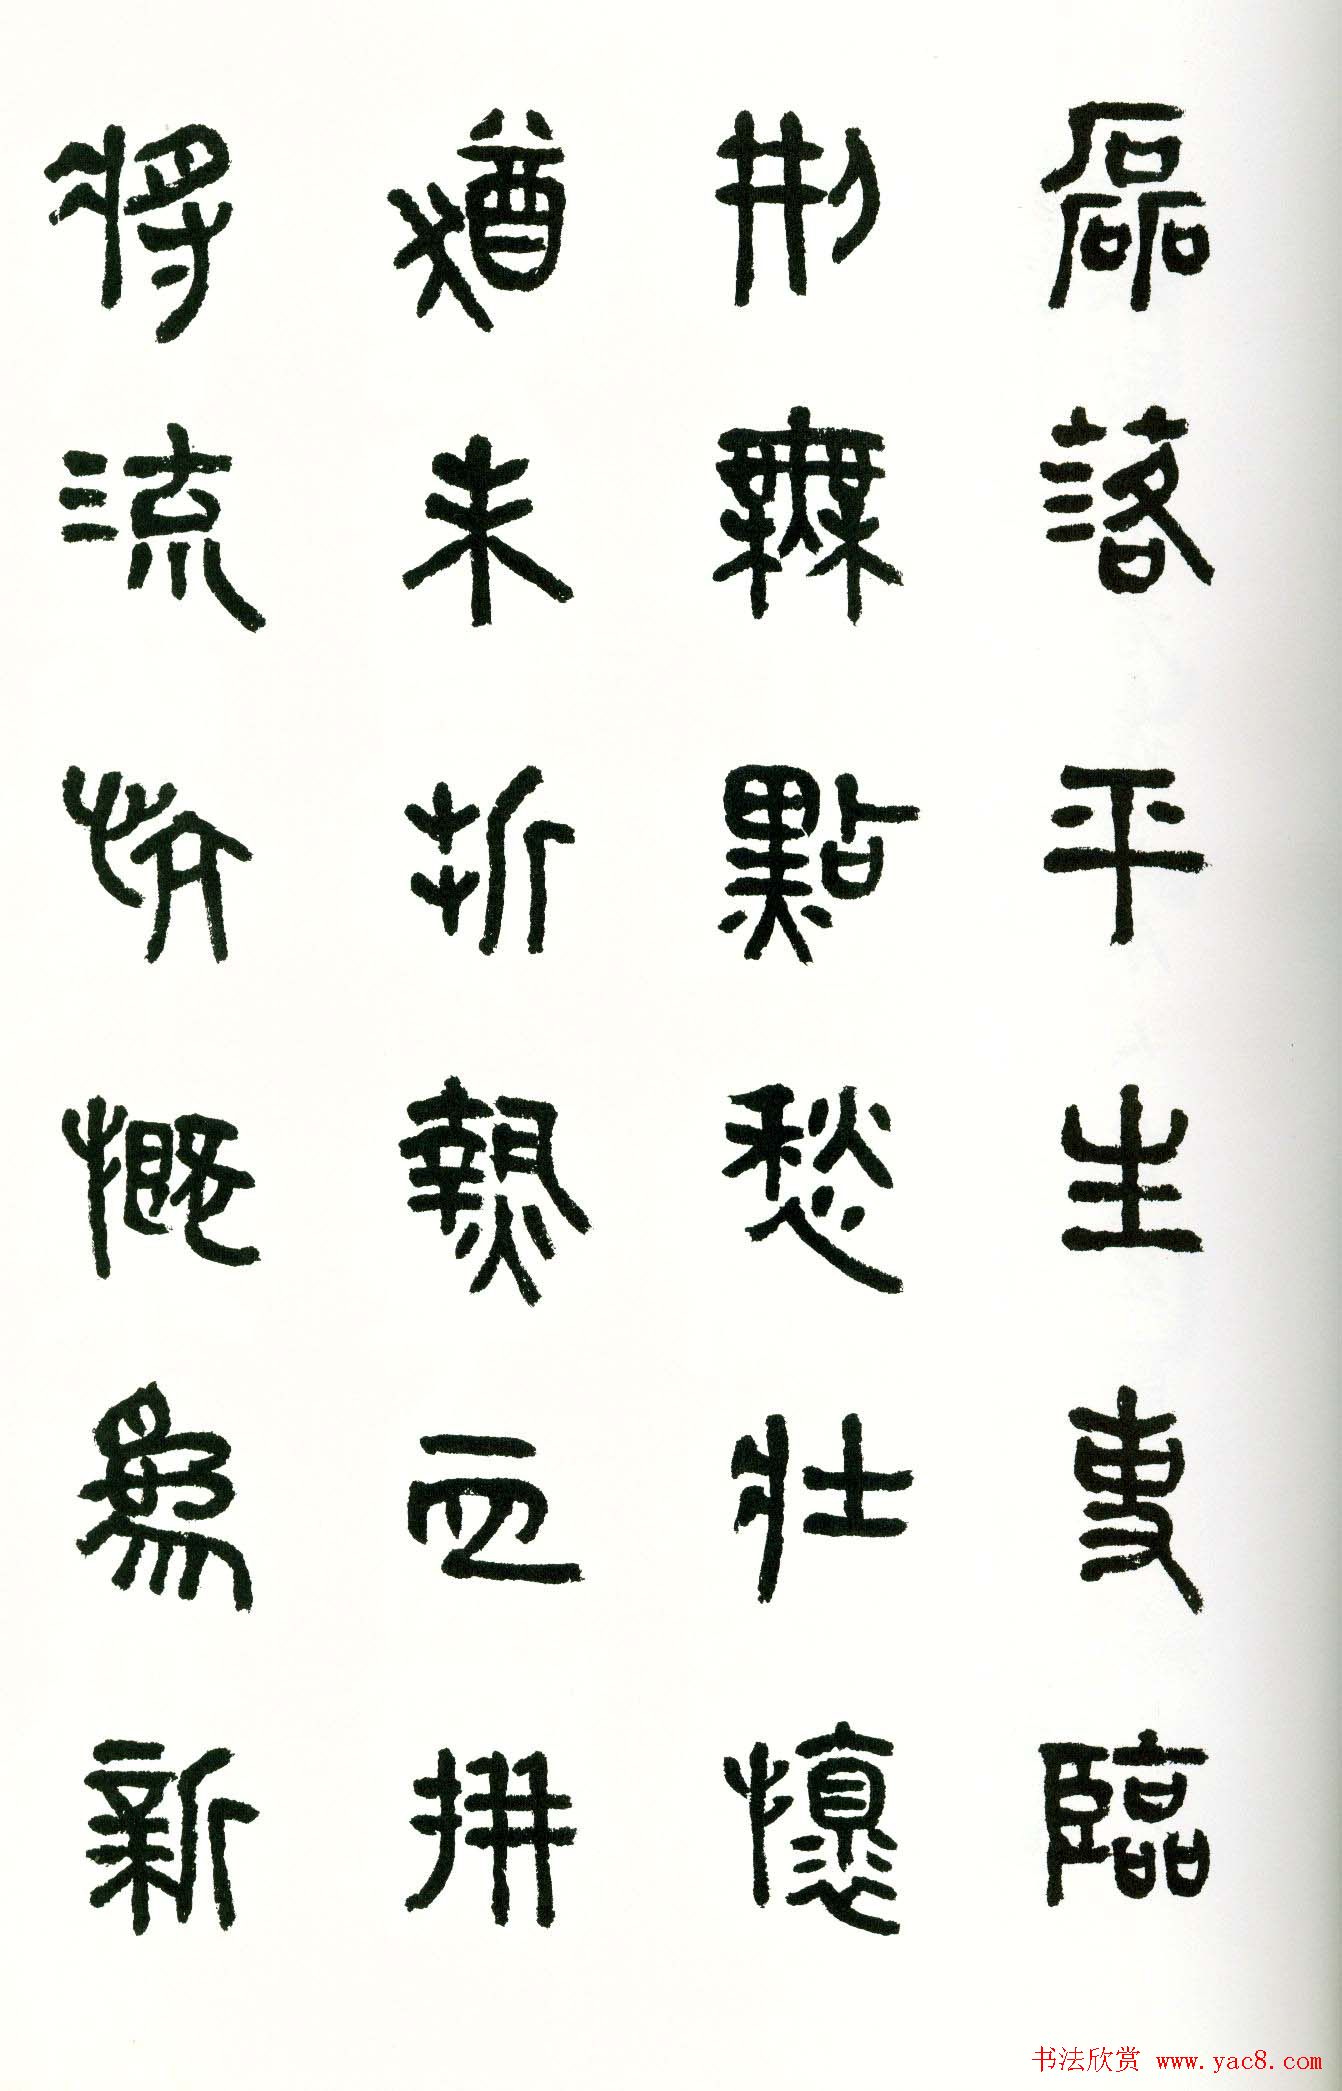 磊落平生事臨
刑無點愁壯懷
猶未折熱血拼
將流忼慨爲新
书法欣赏 www.yac8.com